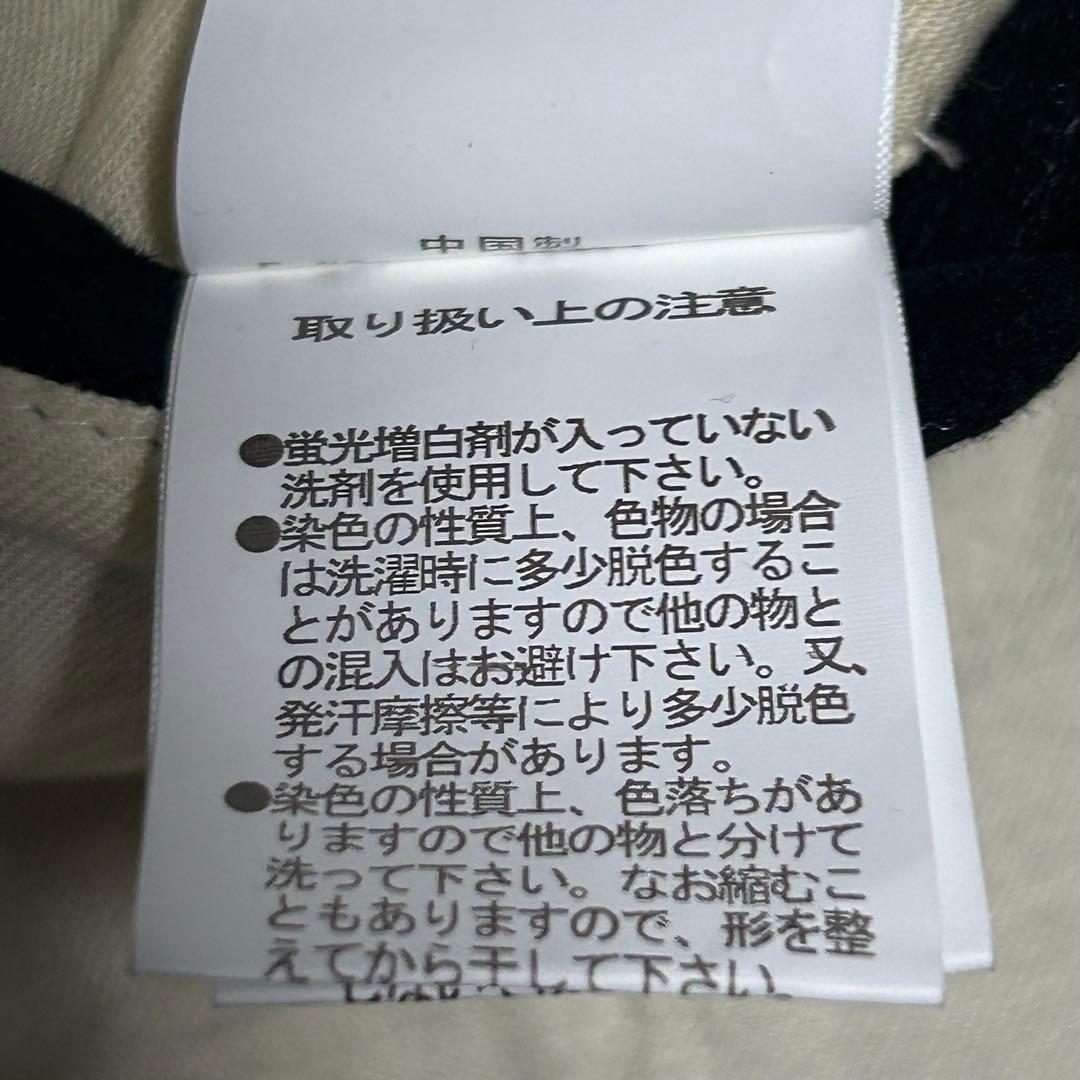 中国製
取り扱い上の注意
●蛍光増白剤が入っていない
洗剤を使用して下さい。
●染色の性質上、色物の場合
は洗濯時に多少脱色するこ
とがありますので他の物と
の混入はお避け下さい。又、
発汗摩擦等により多少脱色
する場合があります。
●染色の性質上、色落ちがあ
りますので他の物と分けて
洗って下さい。なお縮むこ
ともありますので、形を整
えてから干して下さい。